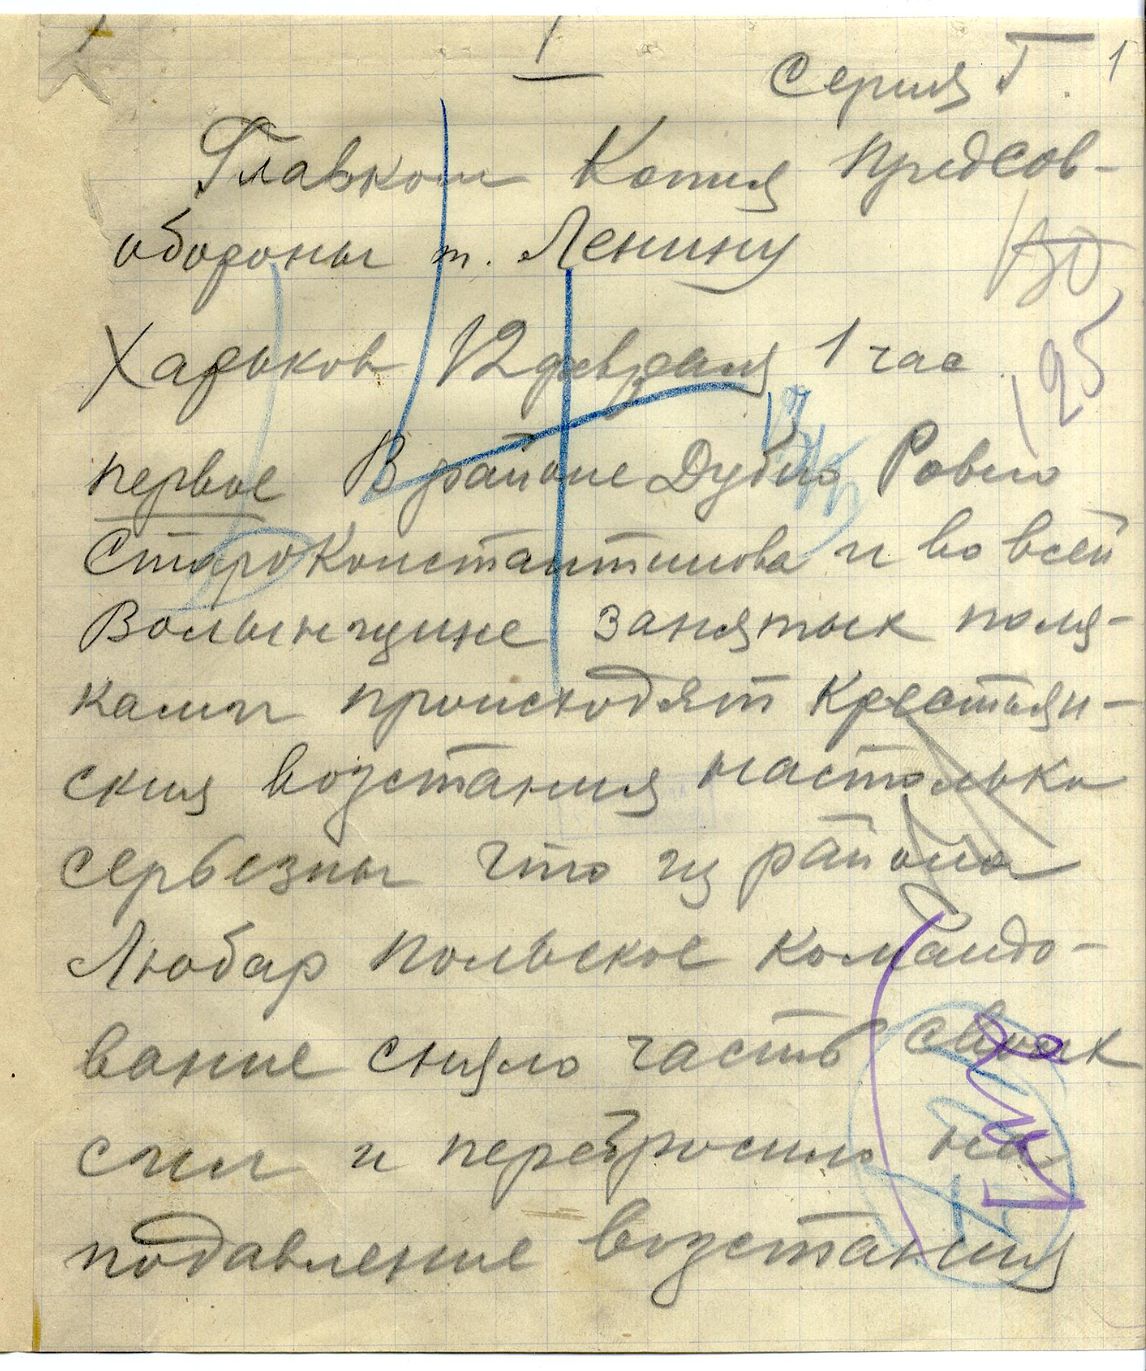 1
1
Серия Г.
Главком Копия Предсов-
обороны т. Ленину
Харьков 12 февраля 1 час
первое В районе Дубно Ровно
Староконстантинова и во всей
Волынщине занятых поля-
ками происходят Крестьян-
ския возстания настолько
серьезны что из района
Любар польское командо-
вание сняло часть своих
сил и перебросило на
подавление возстания